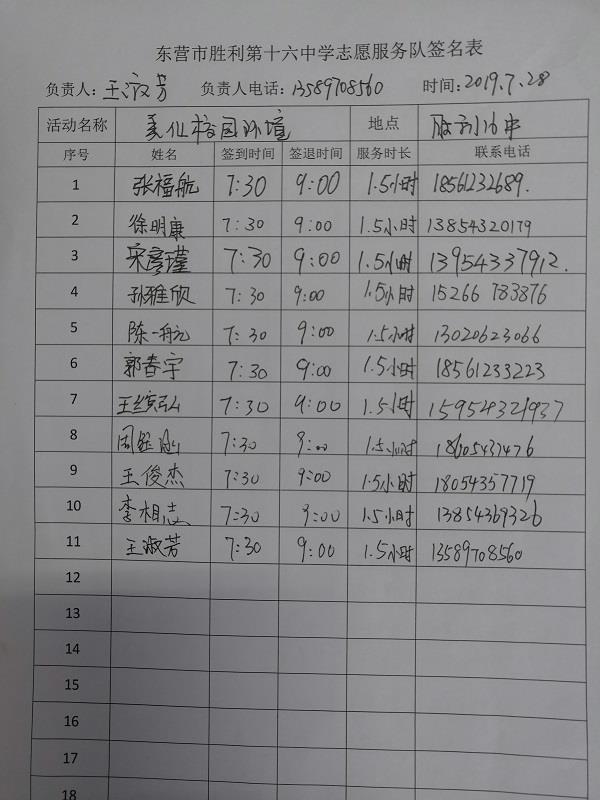 东营市胜利第十六中学志愿服务队签名表
负责人：王淑芳 负责人电话：13589708560 时间：2019.7.28
活动名称 美化校园环境 地点 胜利16中
序号 姓名 签到时间 签退时间 服务时长 联系电话
1 张福航 7:30 9:00 1.5小时 18561232689.
2 徐明康 7:30 9:00 1.5小时 13854320179
3 宋彦瑾 7:30 9:00 1.5小时 13954337912.
4 孙雅欣 7:30 9:00 1.5小时 15266783876
5 陈一航 7:30 9:00 1.5小时 13020623066
6 郭春宇 7:30 9:00 1.5小时 18561233223
7 王缤弘 7:30 9:00 1.5小时 15954321937
8 周钰 7:30 9:00 1.5小时 18605437476
9 王俊杰 7:30 9:00 1.5小时 18054357719
10 李相志 7:30 9:00 1.5小时 13854369326
11 王淑芳 7:30 9:00 1.5小时 13589708560
12
13
14
15
16
17
18